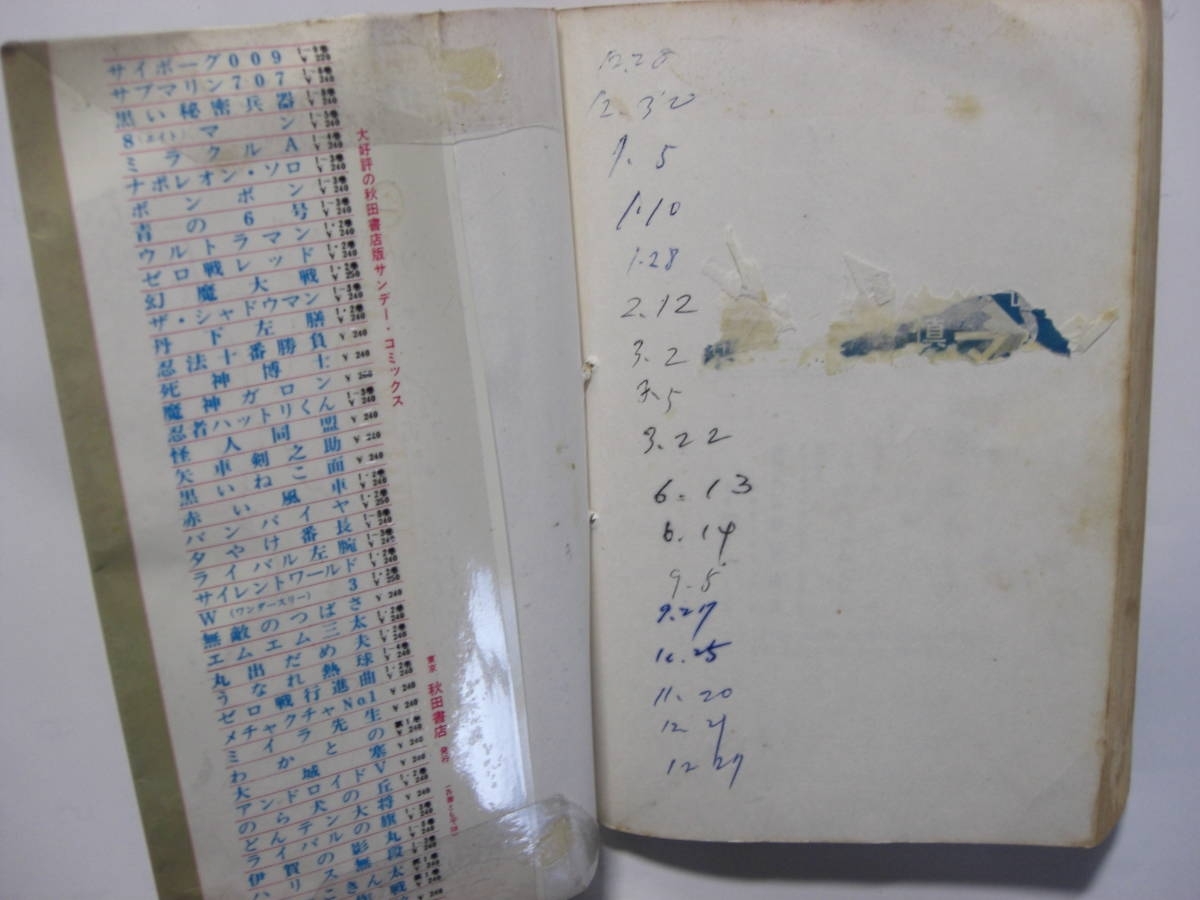 サイボーグ009 1~8巻 ¥220
サブマリン707 1~8巻 ¥240
黒い秘密兵器 1~8巻 ¥240
8(エイト)マン 1~5巻 ¥240
ミラクルA 1~4巻 ¥240
ナポレオン・ソロ 1~3巻 ¥240
ボンボン 1~3巻 ¥240
青の6号 1~3巻 ¥240
ウルトラマン 1・2巻 ¥240
ゼロ戦レッド 1・2巻 ¥240
幻魔大戦 1・2巻 ¥250
ザ・シャドウマン 1~3巻 ¥240
丹下左膳 1・2巻 ¥240
忍法十番勝負 ¥240
死神博士 ¥240
魔神ガロン ¥260
忍者ハットリくん 1~3巻 ¥240
怪人同盟 ¥240
矢車剣之助 ¥240
黒いねこ面 ¥240
赤い風車 1・2巻 ¥240
バンパイヤ 1・2巻 ¥250
夕やけ番長 1~8巻 ¥240
ライバル左腕 1~3巻 ¥240
サイレントワールド 1・2巻 ¥240
W(ワンダースリー)3 1・2巻 ¥250
無敵のつばさ ¥240
エムエム三太 1・2巻 ¥240
丸出だめ夫 1・2巻 ¥240
うなれ熱球 1~4巻 ¥240
ゼロ戦行進曲 1・2巻 ¥240
メチャクチャNo1 ¥240
ミイラ先生 ¥240
わかとの 第1巻 ¥240
大城塞 ¥240
アンドロイドV ¥240
のら犬の丘 1・2巻 ¥240
とんテン大将
ライバルの旗
伊賀の影丸
ハリス無段
大好評の秋田書店版サンデー・コミックス
東京 秋田書店 発行
12.28
12.30
1.5
1.10
1.28
2.12
3.2
3.22
6.13
6.14
9.5
9.27
11.20
12.27
真